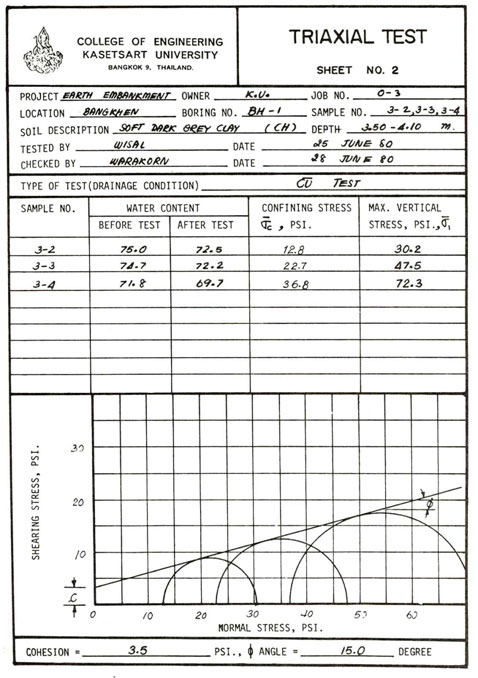 COLLEGE OF ENGINEERING
KASETSART UNIVERSITY
BANGKOK 9, THAILAND.
TRIAXIAL TEST
SHEET NO. 2
PROJECT EARTH EMBANKMENT OWNER K.U. JOB NO. 0-3
LOCATION BANGKHEN BORING NO. BH-1 SAMPLE NO. 3-2,3-3,3-4
SOIL DESCRIPTION SOFT DARK GREY CLAY (CH) DEPTH 3.50-4.10 m.
TESTED BY WISAL DATE 25 JUNE 80
CHECKED BY WARAKORN DATE 28 JUNE 80
TYPE OF TEST(DRAINAGE CONDITION) C̅U̅ TEST
SAMPLE NO. WATER CONTENT CONFINING STRESS MAX. VERTICAL
BEFORE TEST AFTER TEST σ̅c, PSI. STRESS, PSI.,σ̅1
3-2 75.0 72.5 12.8 30.2
3-3 74.7 72.2 22.7 47.5
3-4 71.8 69.7 36.8 72.3
SHEARING STRESS, PSI.
30
20
10
c
ϕ
0 10 20 30 40 50 60
NORMAL STRESS, PSI.
COHESION = 3.5 PSI., ϕ ANGLE = 15.0 DEGREE